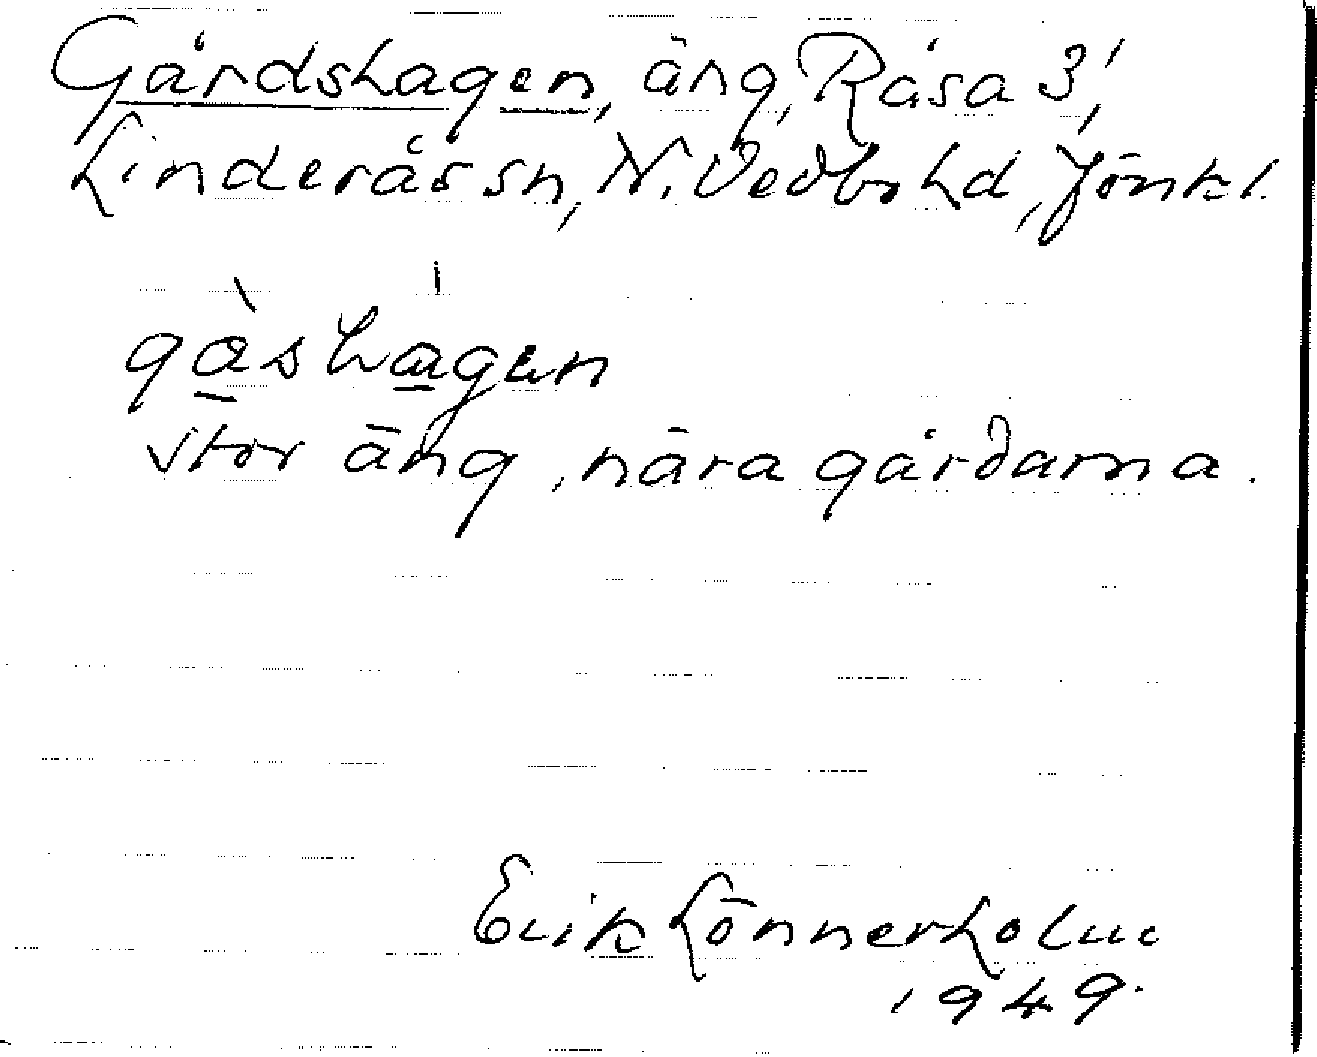 Gårdshagen, äng, Råsa 3,
Linderås sn, N. Vedbo hd, Jönk l.
gàshagen
stor äng, nära gårdarna.
Erik Lönnerholm
1949.